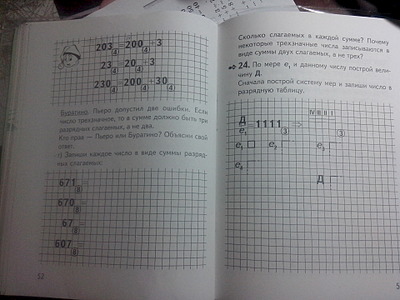 203₍₄₎=200₍₄₎+3
23₍₄₎=20₍₄₎+3
230₍₄₎=200₍₄₎+30₍₄₎
Буратино: Пьеро допустил две ошибки. Если
число трехзначное, то в сумме должно быть три
разрядных слагаемых, а не два.
Кто прав — Пьеро или Буратино? Объясни свой
ответ.
г) Запиши каждое число в виде суммы разряд-
ных слагаемых.
671₍₈₎=
670₍₈₎=
67₍₈₎=
607₍₈₎=
12
Сколько слагаемых в каждой сумме? Почему
некоторые трехзначные числа записываются в
виде суммы двух слагаемых, а не трех?
24. По мере e₁ и данному числу построй вели-
чину Д.
Сначала построй систему мер и запиши число в
разрядную таблицу.
IV III II I
Д/e₁=1111₍₃₎ ⇒
e₁ e₂ e₃
e₄
Д